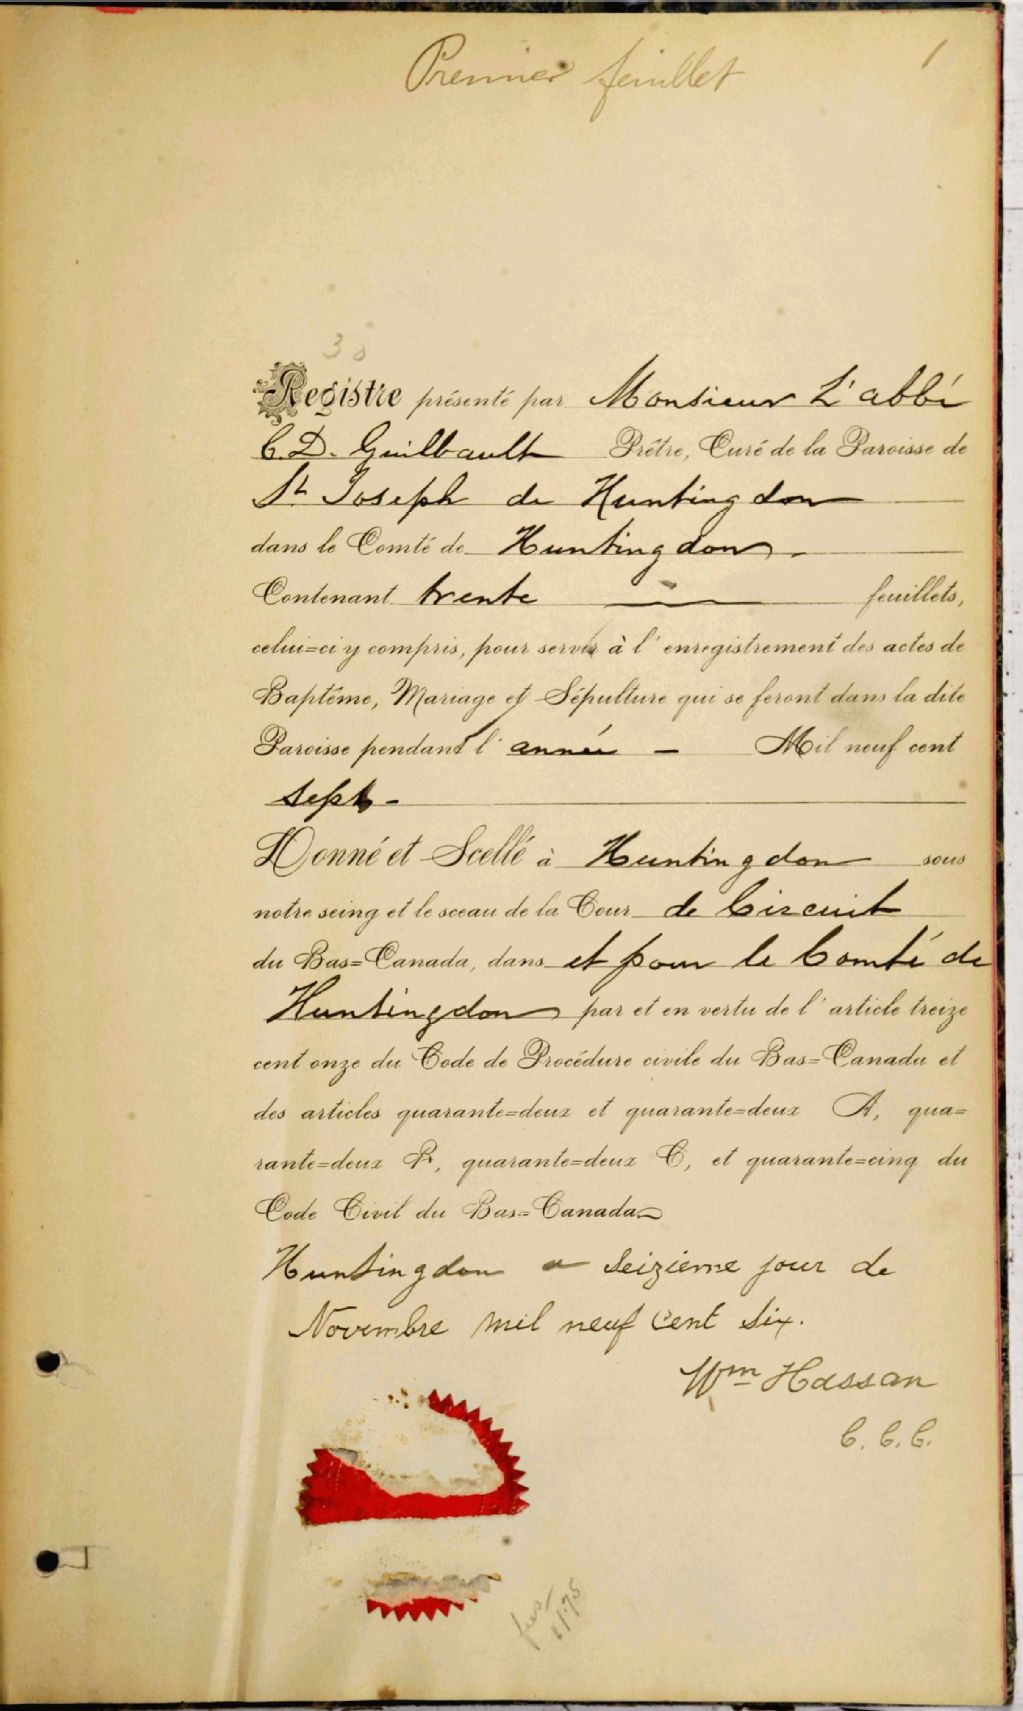 Premier feuillet
1
30
Registre présenté par Monsieur L'abbé
C. D. Guilbault Prêtre, Curé de la Paroisse de
St Joseph de Huntingdon
dans le Comté de Huntingdon -
Contenant trente — feuillets,
celui=ci y compris, pour servir à l'enregistrement des actes de
Baptême, Mariage et Sépulture qui se feront dans la dite
Paroisse pendant l'année - Mil neuf cent
sept -
Donné et Scellé à Huntingdon sous
notre seing et le sceau de la Cour de Circuit
du Bas=Canada, dans et pour le Comté de
Huntingdon par et en vertu de l'article treize
cent onze du Code de Procédure civile du Bas=Canada et
des articles quarante=deux et quarante=deux A, qua=
rante=deux B, quarante=deux C, et quarante=cinq du
Code Civil du Bas=Canada
Huntingdon a Seizieme jour de
Novembre mil neuf cent six.
Wm Hassan
C. C. C.
fees